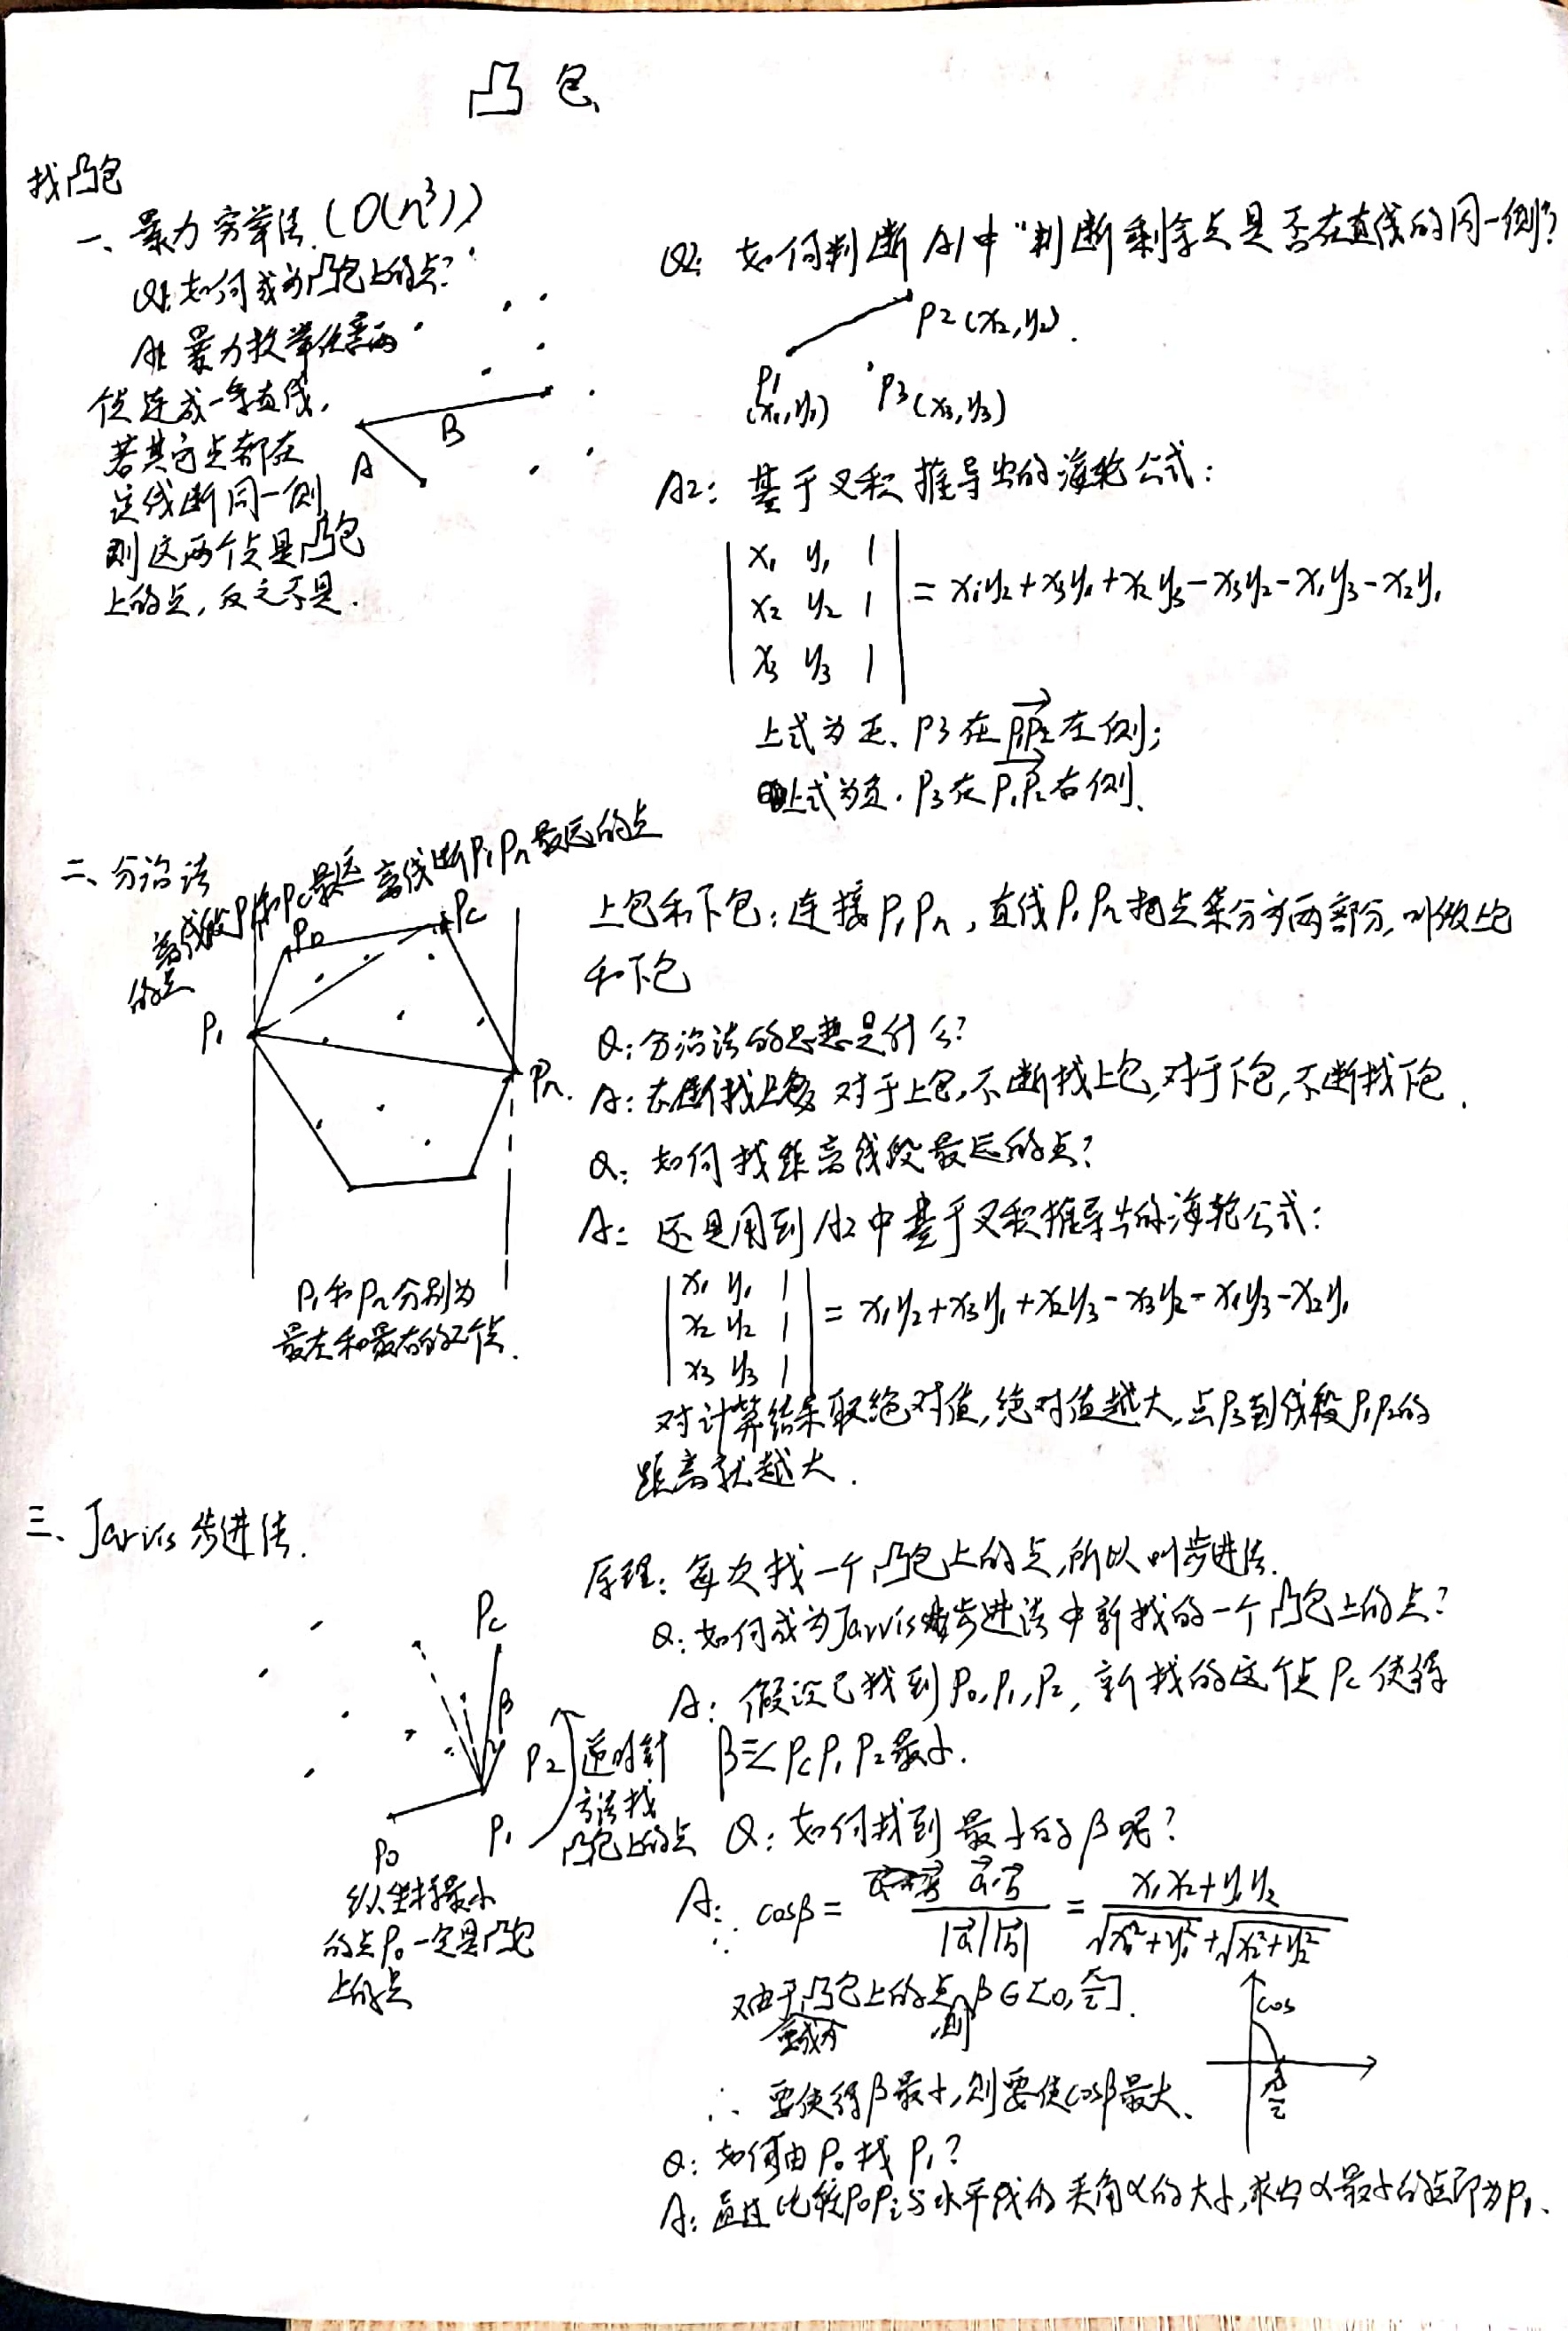 凸包
找凸包
一、暴力穷举法.(O(n³))
Q1:如何成为凸包上的点?
A1:暴力枚举任意两
点连成一条直线,
若其它点都在
这线断同一侧
则这两个点是凸包
上的点,反之不是.
A
B
Q2: 如何判断A1中"判断剩余点是否在直线的同一侧"?
P2(x₂,y₂).
P1
(x₁,y₁)
P3(x₃,y₃)
A2: 基于叉积推导出的海轮公式:
x₁ y₁ 1
x₂ y₂ 1 = x₁y₂+x₃y₁+x₂y₃-x₃y₂-x₁y₃-x₂y₁
x₃ y₃ 1
上式为正、P3在P₁P₂左侧;
上式为负.P3在P₁P₂右侧.
二、分治法
离线断P₁Pn最远的点
离线段P₁和Pc最远
的点
PD
Pc
P₁
Pn.
P₁和Pn分别为
最左和最右的2个点.
上包和下包:连接P₁Pn,直线P₁Pn把点集分为两部分,叫做上包
和下包
Q:分治法的思想是什么?
A: 对于上包,不断找上包,对于下包,不断找下包.
Q: 如何找距离线段最远的点?
A: 还是用到A2中基于叉积推导出的海轮公式:
x₁ y₁ 1
x₂ y₂ 1 = x₁y₂+x₃y₁+x₂y₃-x₃y₂-x₁y₃-x₂y₁
x₃ y₃ 1
对计算结果取绝对值,绝对值越大,点P3到线段P₁P₂的
距离就越大.
三、Jarvis步进法.
Pc
β
P₂
逆时针
方法找
凸包上的点
P₁
P₀
纵坐标最小
的点P₀一定是凸包
上的点
原理:每次找一个凸包上的点,所以叫步进法.
Q:如何成为Jarvis步进法中新找的一个凸包上的点?
A: 假设已找到P₀,P₁,P₂, 新找的这个点Pc使得
β=∠PcP₁P₂最小.
Q:如何找到最小的β呢?
A: ∵ cosβ = a·b / |a||b| = x₁x₂+y₁y₂ / √x₁²+y₁²+√x₂²+y₂²
又由于凸包上的点间β∈[0,π/2].
cos
π/2
∴ 要使得β最小,则要使cosβ最大、
Q: 如何由P₀找P₁?
A: 通过比较P₀Pi与水平线的夹角α的大小,求出α最小的点即为P₁.